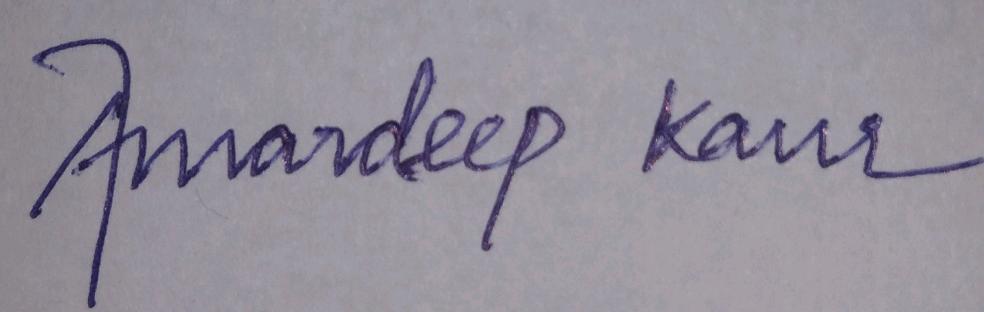 Amardeep Kaur